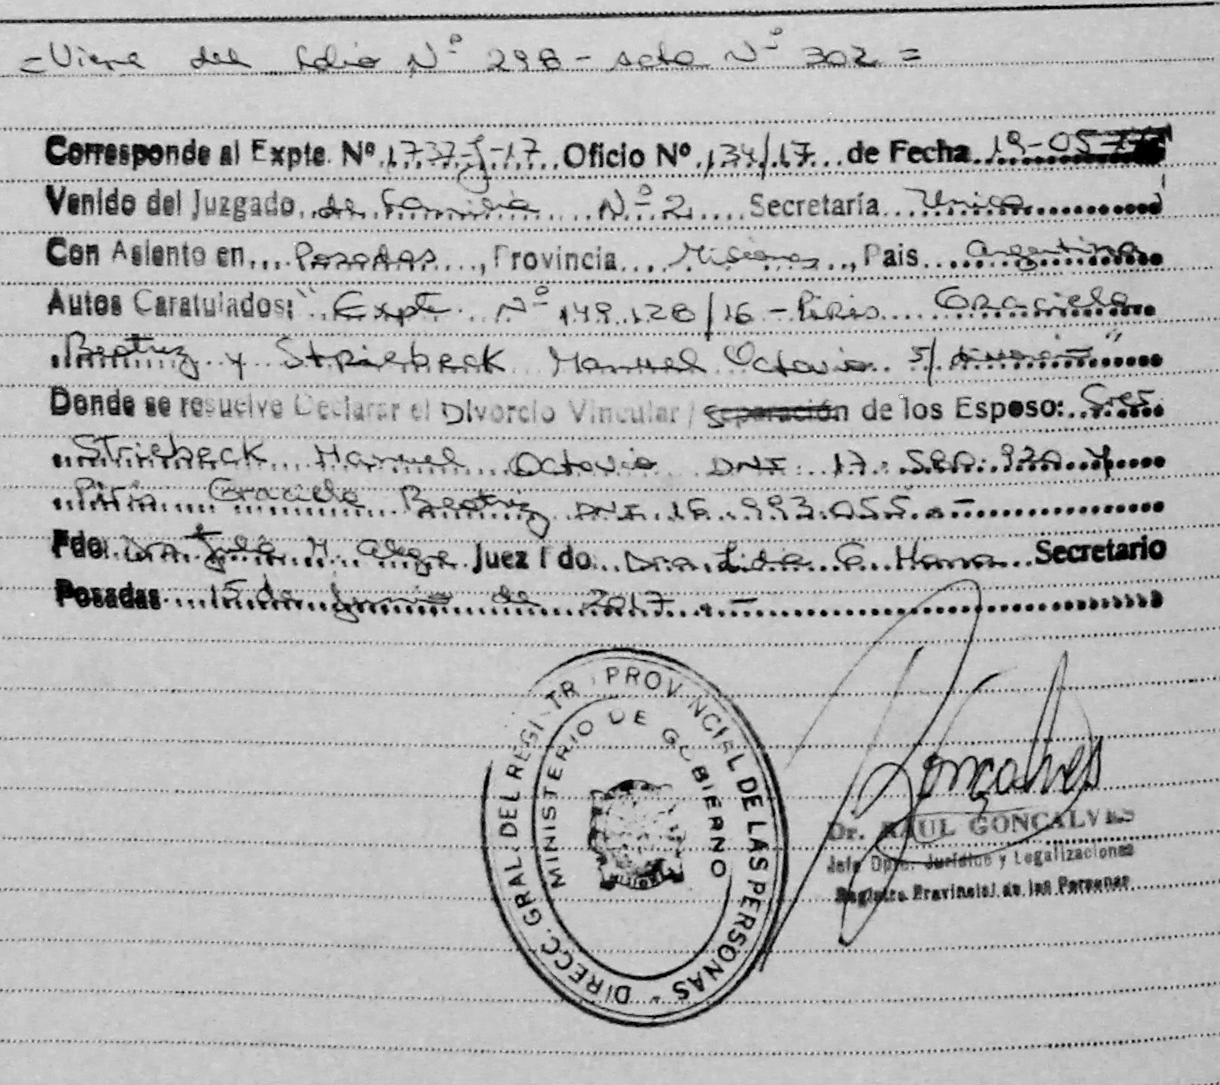 = Viene del folio Nº 298 - acta Nº 302 =
Corresponde al Expte. Nº 1737-J-17 Oficio Nº 134/17 de Fecha 19-05-
Venido del Juzgado de Familia Nº 2 Secretaría Unica
Con Asiento en Posadas, Provincia Misiones, Pais Argentina
Autos Caratulados: "Expte. Nº 149.128/16 - Piris Graciela
Beatriz y Striebeck Manuel Octavio s/ divorcio"
Donde se resuelve Declarar el Divorcio Vincular / Separación de los Esposo: Sres
Striebeck Manuel Octavio DNI 17. y
Piris Graciela Beatriz DNI 16.993.055.-
Fdo. Dra Julia M. Alegre Juez Fdo. Dra. Lidia Secretario
Posadas 15 de Junio de 2017.-
DIRECC. GRAL. DEL REGISTR PROVINCIAL DE LAS PERSONAS -
MINISTERIO DE GOBIERNO
MISIONES
Gonçalves
Dr. RAUL GONCALVES
Jefe Dpto. Jurídico y Legalizaciones
Registro Provincial de las Personas